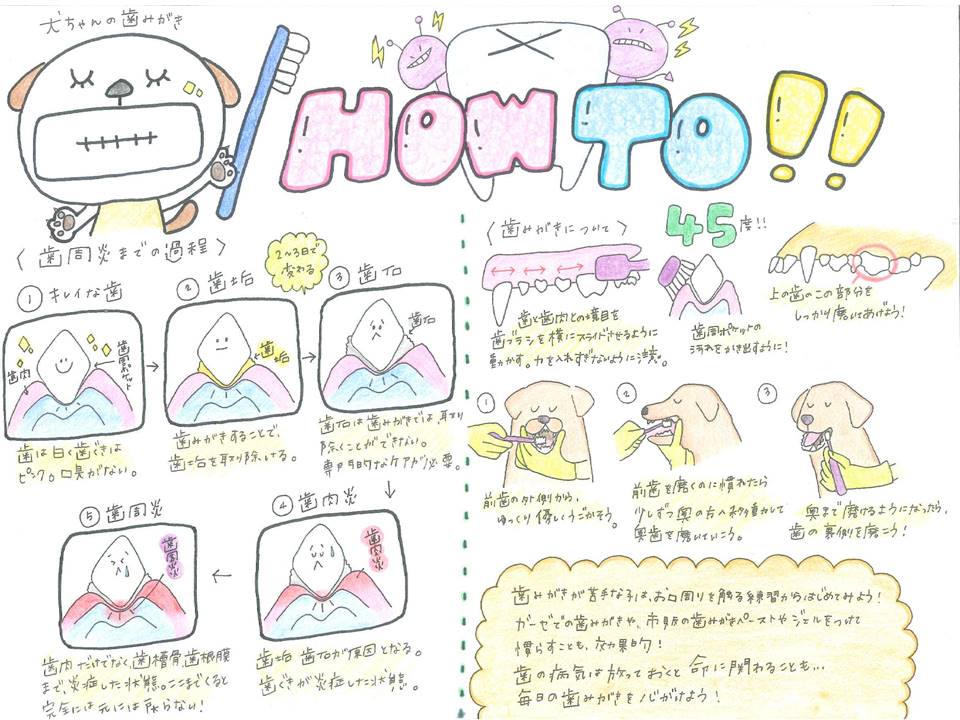 犬ちゃんの歯みがき
HOW TO!!
〈歯周炎までの過程〉
① キレイな歯
歯肉
歯周ポケット
歯は白く歯ぐきは
ピンク。口臭がない。
② 歯垢
2~3日で
変わる
歯垢
歯みがきすることで、
歯垢を取り除ける。
③ 歯石
歯石
歯石は歯みがきでは、取り
除くことができない。
専門的なケアが必要。
④ 歯肉炎
歯肉炎
歯垢 歯石が原因となる。
歯ぐきが炎症した状態。
⑤ 歯周炎
歯周炎
歯肉だけでなく、歯槽骨、歯根膜
まで、炎症した状態。ここまでくると
完全には元には戻らない!
〈歯みがきについて〉
歯と歯肉との境目を
歯ブラシを横にスライドさせるように
動かす。力を入れすぎないように注意。
45度!!
歯周ポケットの
汚れをかき出すように!
上の歯のこの部分を
しっかり磨いてあげよう!
①
前歯の外側から、
ゆっくり優しくうごかそう。
②
前歯を磨くのに慣れたら
少しずつ奥の方へ移動して
奥歯を磨いていこう。
③
奥まで磨けるようになったら、
歯の裏側を磨こう!
歯みがきが苦手な子は、お口周りを触る練習からはじめてみよう!
ガーゼでの歯みがきや、市販の歯みがきペーストやジェルをつけて
慣らすことも、効果的!
歯の病気は放っておくと命に関わることも…
毎日の歯みがきを心がけよう!